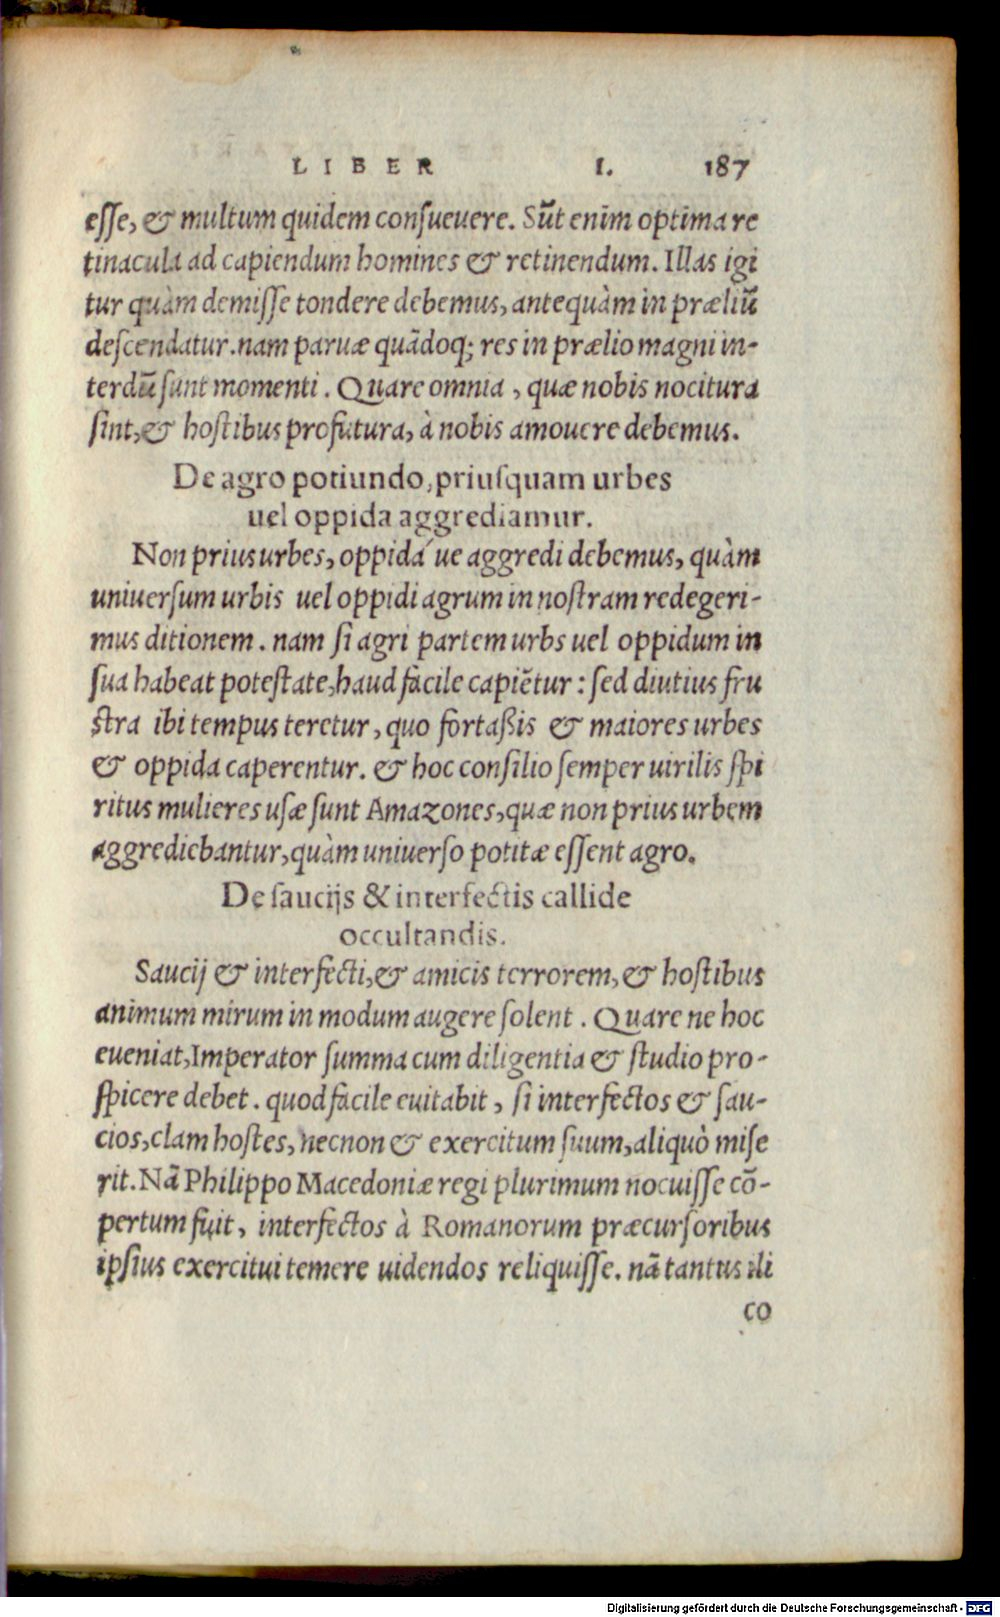 LIBER I. 187
eſſe, & multum quidem conſueuere. Sūt enim optima re
tinacula ad capiendum homines & retinendum. Illas igi
tur quàm demiſſe tondere debemus, antequàm in præliū
deſcendatur. nam paruæ quādoq; res in prælio magni in-
terdū ſunt momenti. Quare omnia, quæ nobis nocitura
ſint, & hoſtibus profutura, à nobis amouere debemus.
De agro potiundo, priuſquam urbes
uel oppida aggrediamur.
Non prius urbes, oppida´ue aggredi debemus, quàm
uniuerſum urbis uel oppidi agrum in noſtram redegeri-
mus ditionem. nam ſi agri partem urbs uel oppidum in
ſua habeat poteſtate, haud fàcile capiētur: ſed diutius fru
ſtra ibi tempus teretur, quo fortaßis & maiores urbes
& oppida caperentur. & hoc conſilio ſemper uirilis ſpi
ritus mulieres uſæ ſunt Amazones, quæ non prius urbem
aggrediebantur, quàm uniuerſo potitæ eſſent agro.
De ſaucijs & interfectis callide
occultandis.
Saucij & interfecti, & amicis terrorem, & hoſtibus
animum mirum in modum augere ſolent. Quare ne hoc
eueniat, Imperator ſumma cum diligentia & ſtudio pro-
ſpicere debet. quod fàcile euitabit, ſi interfectos & ſau-
cios, clam hoſtes, necnon & exercitum ſuum, aliquò miſe
rit. Nā Philippo Macedoniæ regi plurimum nocuiſſe cō-
pertum fuit, interfectos à Romanorum præcurſoribus
ipſius exercitui temere uidendos reliquiſſe. nā tantus illi
co
Digitalisierung gefördert durch die Deutsche Forschungsgemeinschaft - DFG